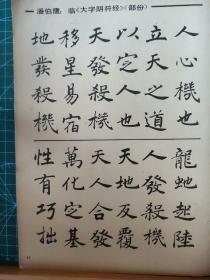 潘伯鹰,临《大字阴符经》(部份)
人心機也
立天之道
以定人也
天發殺機
移星易宿
地發殺機
龍虵起陸
人發殺機
天地反覆
天人合發
萬化定基
性有巧拙